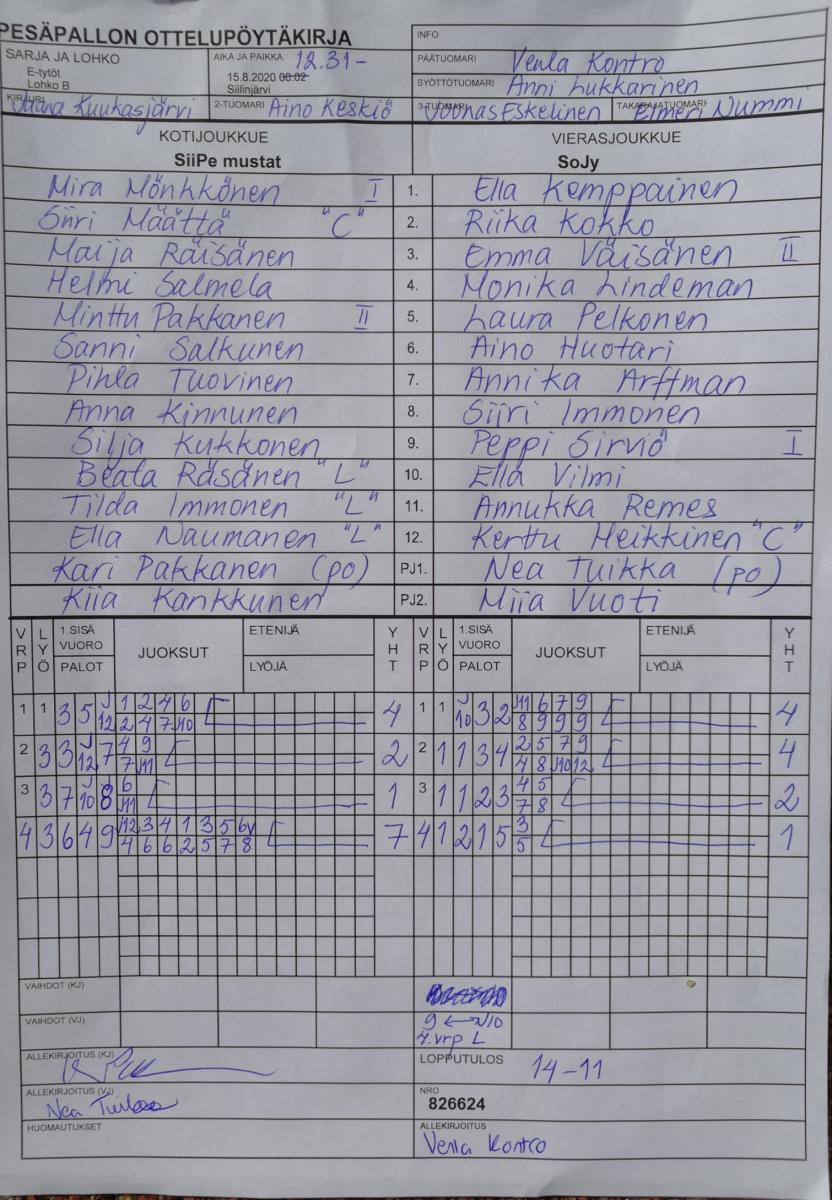 PESÄPALLON OTTELUPÖYTÄKIRJA
INFO
SARJA JA LOHKO
E-tytöt
Lohko B
AIKA JA PAIKKA 12.31-
15.8.2020 00:02
Siilinjärvi
PÄÄTUOMARI Venla Kontro
SYÖTTÖTUOMARI Anni Lukkarinen
KIRJURI Kuukasjärvi
2-TUOMARI Aino Keskiö
3-TUOMARI Joonas Eskelinen
TAKARAJATUOMARI Elmeri Nummi
KOTIJOUKKUE
SiiPe mustat
VIERASJOUKKUE
SoJy
Mira Mönkkönen I 1. Ella Kemppainen
Siiri Määttä "C" 2. Riika Kokko
Maija Räisänen 3. Emma Väisänen II
Helmi Salmela 4. Monika Lindeman
Minttu Pakkanen II 5. Laura Pelkonen
Sanni Salkunen 6. Aino Huotari
Pihla Tuovinen 7. Annika Arffman
Anna Kinnunen 8. Siiri Immonen
Silja Kukkonen 9. Peppi Sirviö I
Beata Räsänen "L" 10. Ella Vilmi
Tilda Immonen "L" 11. Annukka Remes
Ella Naumanen "L" 12. Kerttu Heikkinen "C"
Kari Pakkanen (po) PJ1. Nea Tuikka (po)
Kiia Kankkunen PJ2. Miia Vuoti
VRP LYÖ 1.SISÄ VUORO PALOT JUOKSUT ETENIJÄ LYÖJÄ YHT VRP LYÖ 1.SISÄ VUORO PALOT JUOKSUT ETENIJÄ LYÖJÄ YHT
1 1 3 5 J12 1 2 4 6 4 1 1 J10 3 2 11 6 7 9 4
2 4 7 10 8 9 9 9
2 3 3 J12 7 4 9 2 2 1 1 3 4 2 5 7 9 4
7 11 4 8 10 12
3 3 7 J10 8 6 1 3 1 1 2 3 4 5 2
11 7 8
4 3 6 4 9 12 3 4 1 3 5 6v 7 4 1 2 1 5 3 1
4 6 6 2 5 7 8 5
VAIHDOT (KJ)
VAIHDOT (VJ)
9 ↔ 10
4.vrp L
ALLEKIRJOITUS (KJ)
LOPPUTULOS 14-11
ALLEKIRJOITUS (VJ)
Nea Tuikka
NRO
826624
HUOMAUTUKSET
ALLEKIRJOITUS
Venla Kontro